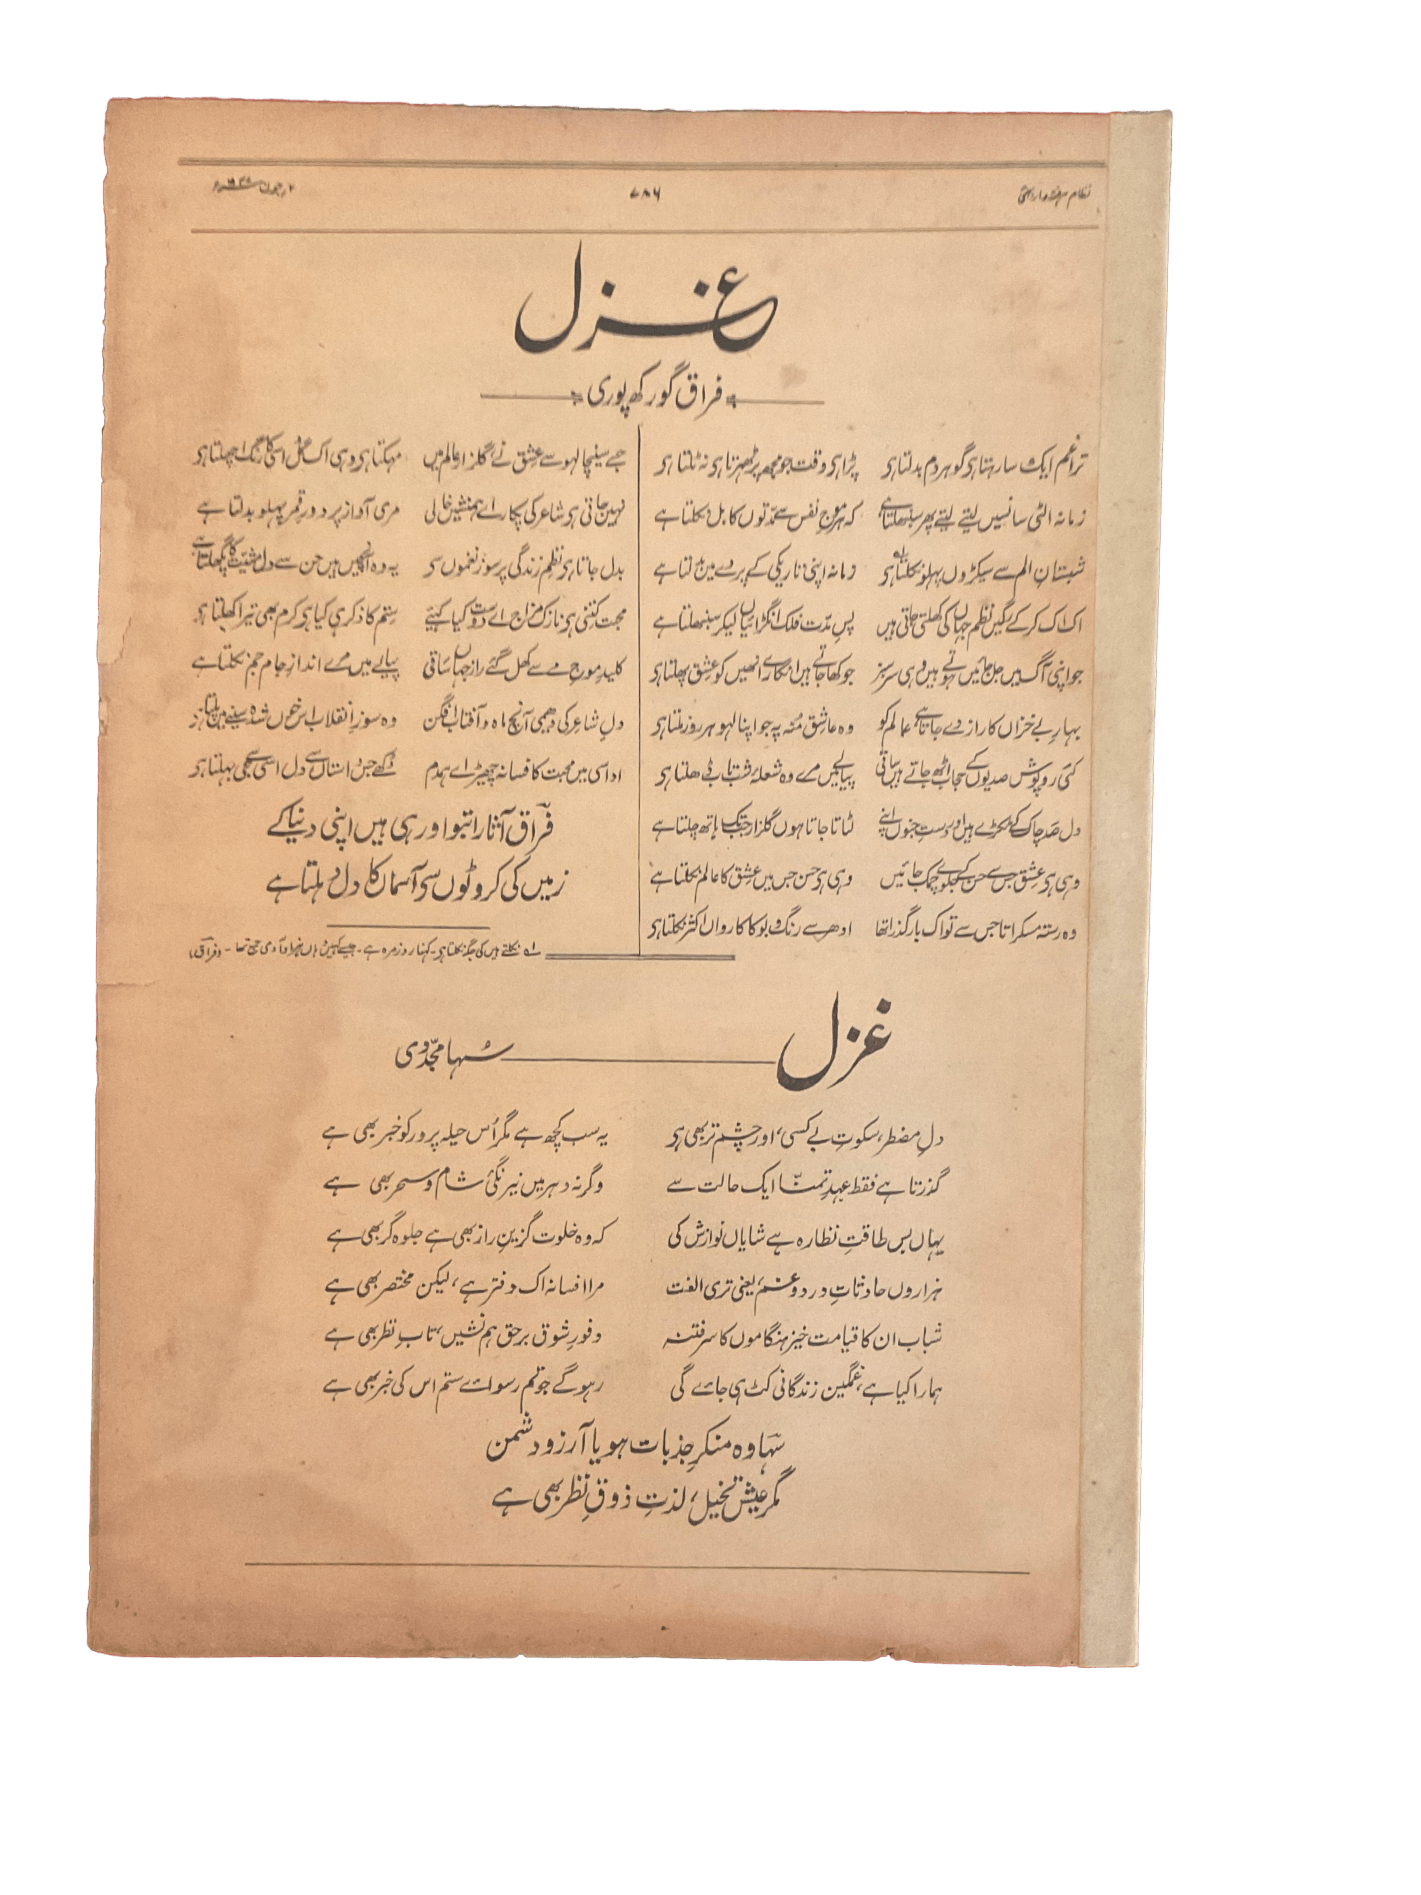 نظام ہفتہ وار بمبئی
۷۸۶
۲ جون
غزل
فراق گورکھپوری
ترا غم ایک سا رہتا ہی گو ہر دم بدلتا ہی
پڑا ہی وقت جو مجھ پر ٹھہرتا ہی نہ ٹلتا ہی
زمانہ الٹی سانسیں لیتے لیتے پھر سنبھلتا ہے
کہ ہر موجِ نفس سے مدّتوں کا بل نکلتا ہے
شبستانِ الم سے سیکڑوں پہلو نکلتا ہی
زمانہ اپنی تاریکی کے پردے میں بدلتا ہے
اک اک کر کے گہیں نظمِ جہاں کی کھلتی جاتی ہیں
پسِ مدّت فلک انگڑائیاں لیکر سنبھلتا ہے
جو اپنی آگ میں جل جائیں ہوتے ہیں وہی سرسبز
جو کھا جاتے ہیں انگارے انھیں کو عشق پھلتا ہی
بہارِ بے خزاں کا راز دے جاتا ہے عالم کو
وہ عاشق منہ پہ جو اپنا لہو ہر روز ملتا ہی
کئی روپوش صدیوں کے حجاب اٹھ جاتے ہیں ساقی
پیالے میں مے وہ شعلۂ شتاب ڈھلتا ہی
دل صد چاک کے ٹکڑے ہیں اور دستِ جنوں اپنے
لٹاتا جاتا ہوں گلزار جبتک ہاتھ چلتا ہے
وہی ہی عشق جس سے حسن کے جلوے چمک جائیں
وہی ہی حسن جس میں عشق کا عالم نکلتا ہے
وہ رستہ مسکراتا جس سے تو اک بار گذرا تھا
ادھر سے رنگ و بو کا کارواں اکثر نکلتا ہی
جسے سینچا لہو سے عشق نے گلزارِ عالم میں
مہکتا ہی وہی اک گل اسی کا رنگ اچھلتا ہی
نہیں جاتی ہی شاعر کی پکار اے ہمنشیں خالی
مری آواز پر دورِ قمر پہلو بدلتا ہے
بدل جاتا ہی نظمِ زندگی پر سوز نغموں سے
یہ وہ آنچیں ہیں جن سے دل مشیّت کا پگھلتا ہے
محبت کتنی ہی نازک مزاج اے دوست کیا کہئیے
ستم کا ذکر ہی کیا ہی کرم بھی تیرا کھلتا ہی
کلیدِ موجِ مے سے کھل گئے رازِ جہاں ساقی
پیالے میں مے اندازِ جامِ جم نکلتا ہے
دلِ شاعر کی دھیمی آنچ ماہ و آفتاب افگن
وہ سوزِ انقلاب اس خوں شدہ سینے میں پلتا ہی
اداسی میں محبت کا فسانہ چھیڑ اے ہمدم
دُکھے جس داستاں سے دل اسی سے جی بہلتا ہی
فراق آثار ابتو اور ہی ہیں اپنی دنیا کے
زمیں کی کروٹوں سے آسماں کا دل دہلتا ہے
لہ نکلتے ہیں کی جگہ نکلتا ہی۔ کہنا روزمرہ ہے۔ جیسے کہیں ہاں ہزار آدمی جمع تھا۔ (فراق)
غزل
سُہا مجدّدی
دلِ مضطر، سکوتِ بے کسی، اور چشمِ تر بھی ہی
یہ سب کچھ ہے مگر اُس حیلہ پرور کو خبر بھی ہے
گذرتا ہے فقط عہدِ تمنّا ایک حالت سے
وگرنہ دہر میں نیرنگیٔ شام و سحر بھی ہے
یہاں بس طاقتِ نظارہ ہے شایاں نوازش کی
کہ وہ خلوت گزینِ راز بھی ہے جلوہ گر بھی ہے
ہزاروں حادثاتِ درد و غم، یعنی تری الفت
مرا افسانہ اک دفتر ہے، لیکن مختصر بھی ہے
شباب ان کا قیامت خیز ہنگاموں کا سر فتنہ
وفورِ شوق برحق ہم نشیں، تابِ نظر بھی ہے
ہمارا کیا ہے، غمگین زندگانی کٹ ہی جائے گی
رہو گے جو تم رسوائے ستم اس کی خبر بھی ہے
سُہا وہ منکرِ جذبات ہو یا آرزو دشمن
مگر عیشِ تخیل، لذتِ ذوقِ نظر بھی ہے